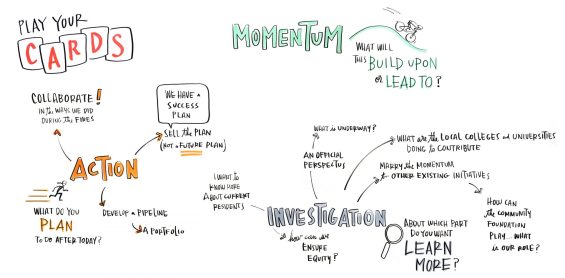 PLAY YOUR
CARDS
MOMENTUM
WHAT WILL
THIS BUILD UPON
OR LEAD TO?
COLLABORATE!
IN THE WAYS WE DID
DURING THE FIRES
WE HAVE A
SUCCESS
PLAN
SELL THE PLAN
(NOT A FUTURE PLAN)
ACTION
WHAT DO YOU
PLAN
TO DO AFTER TODAY?
DEVELOP A PIPELINE
A PORTFOLIO
WHAT IS UNDERWAY?
AN OFFICIAL
PERSPECTUS
WHAT ARE THE LOCAL COLLEGES AND UNIVERSITIES
DOING TO CONTRIBUTE
MARRY THE MOMENTUM
TO OTHER EXISTING INITIATIVES
I WANT TO
KNOW MORE
ABOUT CURRENT
RESIDENTS
INVESTIGATION
HOW CAN WE
ENSURE
EQUITY?
ABOUT WHICH PART
DO YOU WANT
LEARN
MORE?
HOW CAN
THE COMMUNITY
FOUNDATION
PLAY... WHAT
IS OUR ROLE?